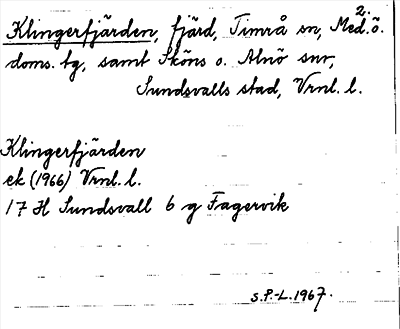 2.
Klingerfjärden, fjärd, Timrå sn, Med.ö.
doms. tg, samt Sköns o. Alnö snr,
Sundsvalls stad, Vrnl. l.
Klingerfjärden
ek (1966) Vrnl. l.
17 H Sundsvall 6 g Fagervik
S.P.-L. 1967.